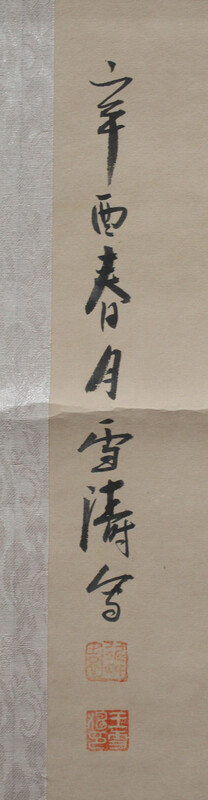 辛酉春月雪濤写